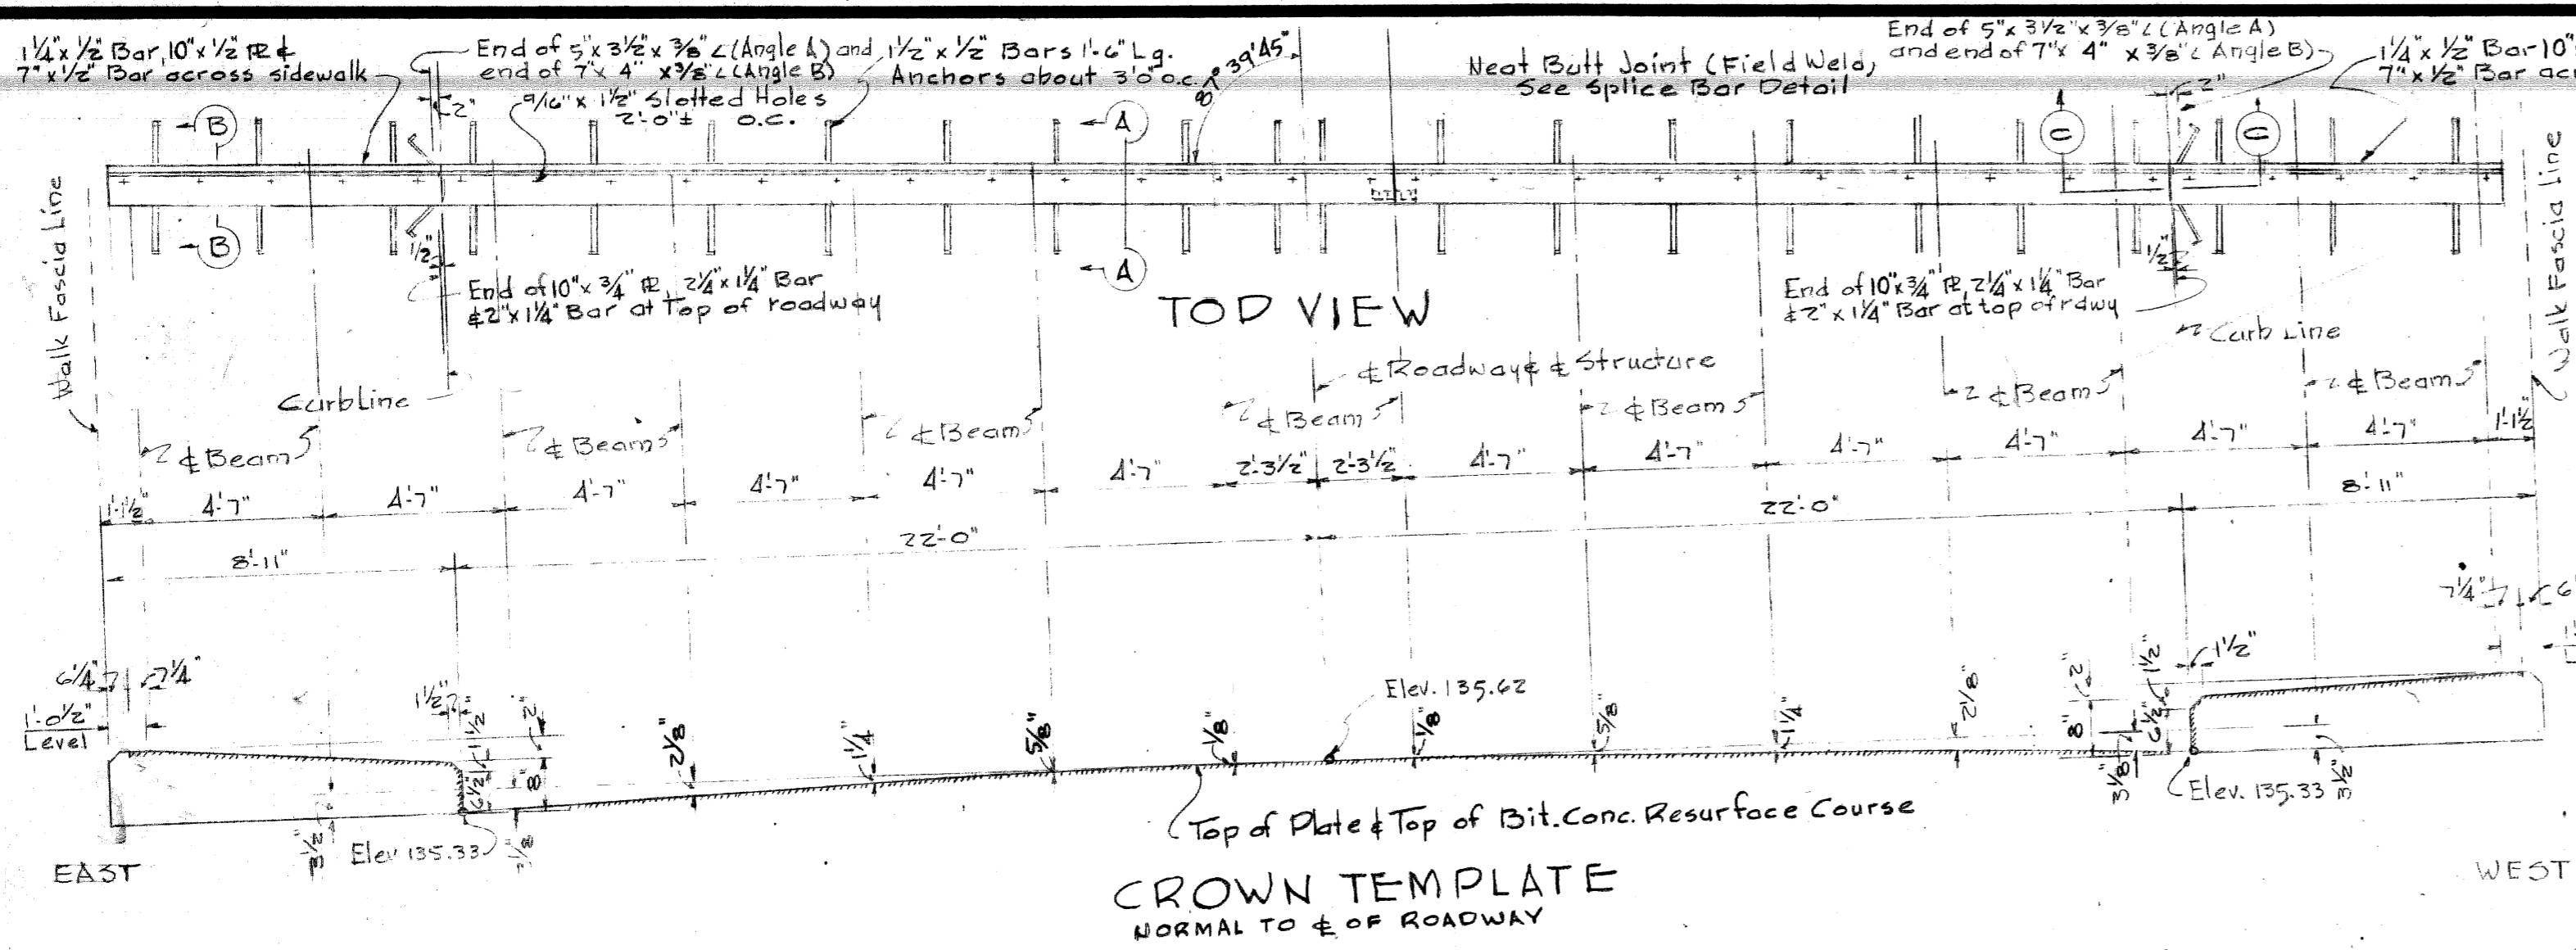 1¼"x ½" Bar, 10"x ½" ℞ &
7"x ½" Bar across sidewalk
End of 5"x 3½"x ⅜" ∠ (Angle A) and
end of 7"x 4" x ⅜" ∠ (Angle B)
1½"x ½" Bars 1'-6" Lg.
Anchors about 3'0" o.c.
9/16" x 1½" Slotted Holes
2'-0"± O.C.
2"
39' 45"
Neat Butt Joint (Field Weld)
See Splice Bar Detail
End of 5"x 3½"x ⅜" ∠ (Angle A)
and end of 7"x 4" x ⅜" ∠ Angle B)
1¼"x ½" Bar-10"
7"x ½" Bar
2"
B
A
C
C
B
A
½"
½"
Walk Fascia Line
Walk Fascia Line
End of 10"x ¾" ℞, 2¼"x 1¼" Bar
& 2"x 1¼" Bar at Top of roadway
TOP VIEW
End of 10"x ¾" ℞, 2¼"x 1¼" Bar
& 2"x 1¼" Bar at top of rdwy
Curb Line
Curb Line
℄ Roadway & ℄ Structure
℄ Beams
℄ Beams
℄ Beams
℄ Beams
℄ Beams
℄ Beams
℄ Beams
1'-1½" 4'-7" 4'-7" 4'-7" 4'-7" 4'-7" 4'-7" 2'-3½" 2'-3½" 4'-7" 4'-7" 4'-7" 4'-7" 4'-7" 4'-7" 1'-1½"
8'-11" 22'-0" 22'-0" 8'-11"
6¼" 7¼"
1'-0½"
Level
1½"
1½"
2"
6½"
8"
2⅛"
1¼"
⅝"
⅛"
Elev. 135.62
⅛"
⅝"
1¼"
2⅛"
8"
2"
1½"
6½"
1½"
7¼"
3½"
Elev 135.33
3⅛"
Elev. 135.33
3½"
Top of Plate & Top of Bit. Conc. Resurface Course
EAST
WEST
CROWN TEMPLATE
NORMAL TO ℄ OF ROADWAY